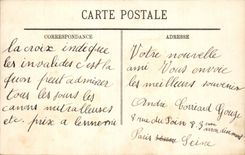 CARTE POSTALE
CORRESPONDANCE
ADRESSE
la croix indique
les invalides c'est la
qu'on peut admirer
tous les jours les
canons mitrailleuses
etc. prix a lennemi
Votre nouvelle
ami Vous envoie
les meilleurs souvenirs
André
8 rue du
Paris
Seine